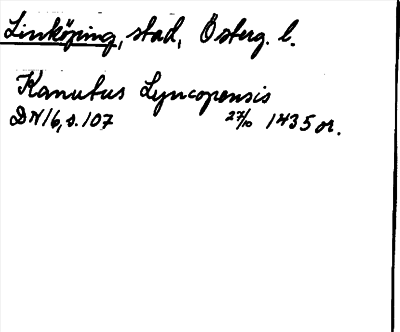 Linköping, stad, Österg. l.
Kanutus Lyncopensis
DN 16, s. 107 27/10 1435 or.